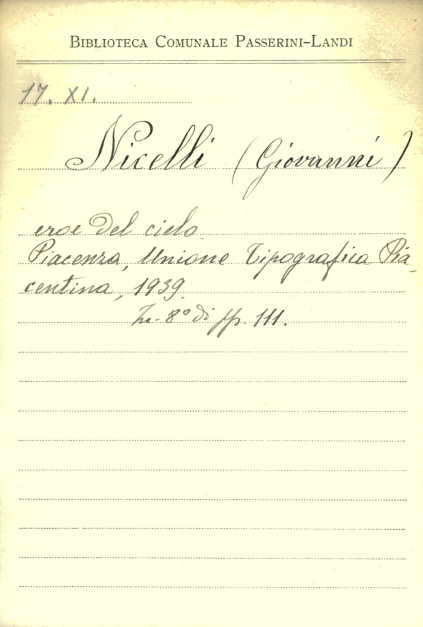 BIBLIOTECA COMUNALE PASSERINI-LANDI
17. XI.
Nicelli (Giovanni)
eroe del cielo
Piacenza, Unione Tipografica Pia
centina, 1939.
In-8° di pp. 111.